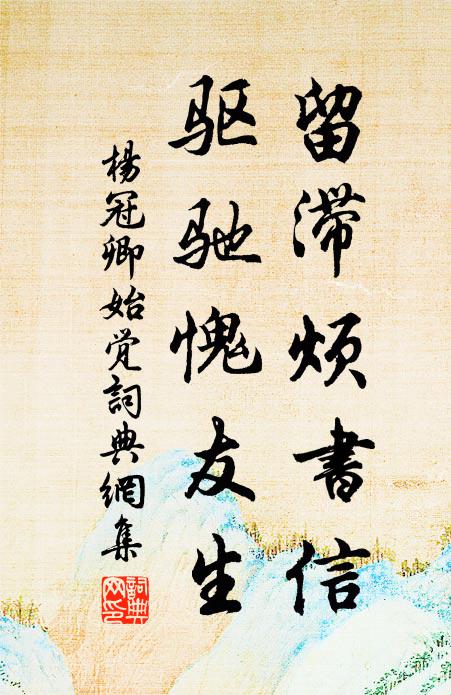 留滞烦書信
驱驰愧友生
楊冠卿始觉詞典網集
詞典網印